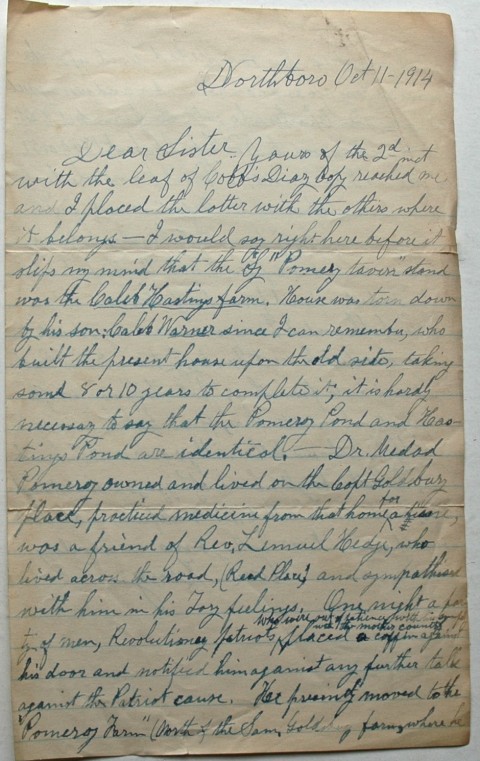 Northboro Oct 11-1914
Dear Sister. Yours of the 2d inst
with the leaf of Cobb's Diary copy reached me
and I placed the latter with the others where
it belongs — I would say right here before it
slips my mind that the "Pomeroy tavern" stand
was the Caleb Hastings farm. House was torn down
by his son; Caleb Warner since I can remember, who
built the present house upon the old site, taking
some 8 or 10 years to complete it; it is hardly
necessary to say that the Pomeroy Pond and Has-
tings Pond are identical. — Dr. Medad
Pomeroy owned and lived on the Capt Goldsbury
place, practiced medicine from that home for a time,
was a friend of Rev, Lemuel Hedge, who
lived across the road, (Reed Place) and sympathised
with him in his Tory feelings. One night a par-
who were out of patience with his sympathy
with the mother country
ty of men, Revolutionary Patriots, placed a coffin against
his door and notified him against any further talk
against the Patriot cause. He presently moved to the
"Pomeroy Farm" (North of the Sam, Goldsbury farm, where he